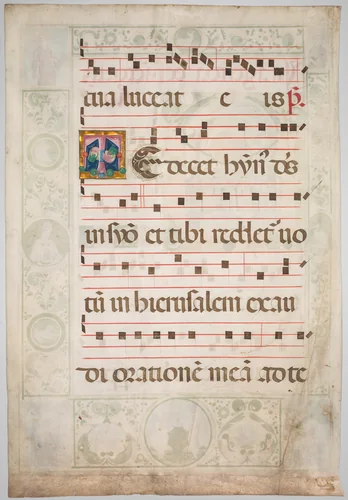 tua luceat e is p̃s
TE decet hỹñ d̃s
in syõ et tibi reddet᾿ uo
tũ in hierusalem exau
di orationẽ meã ad te